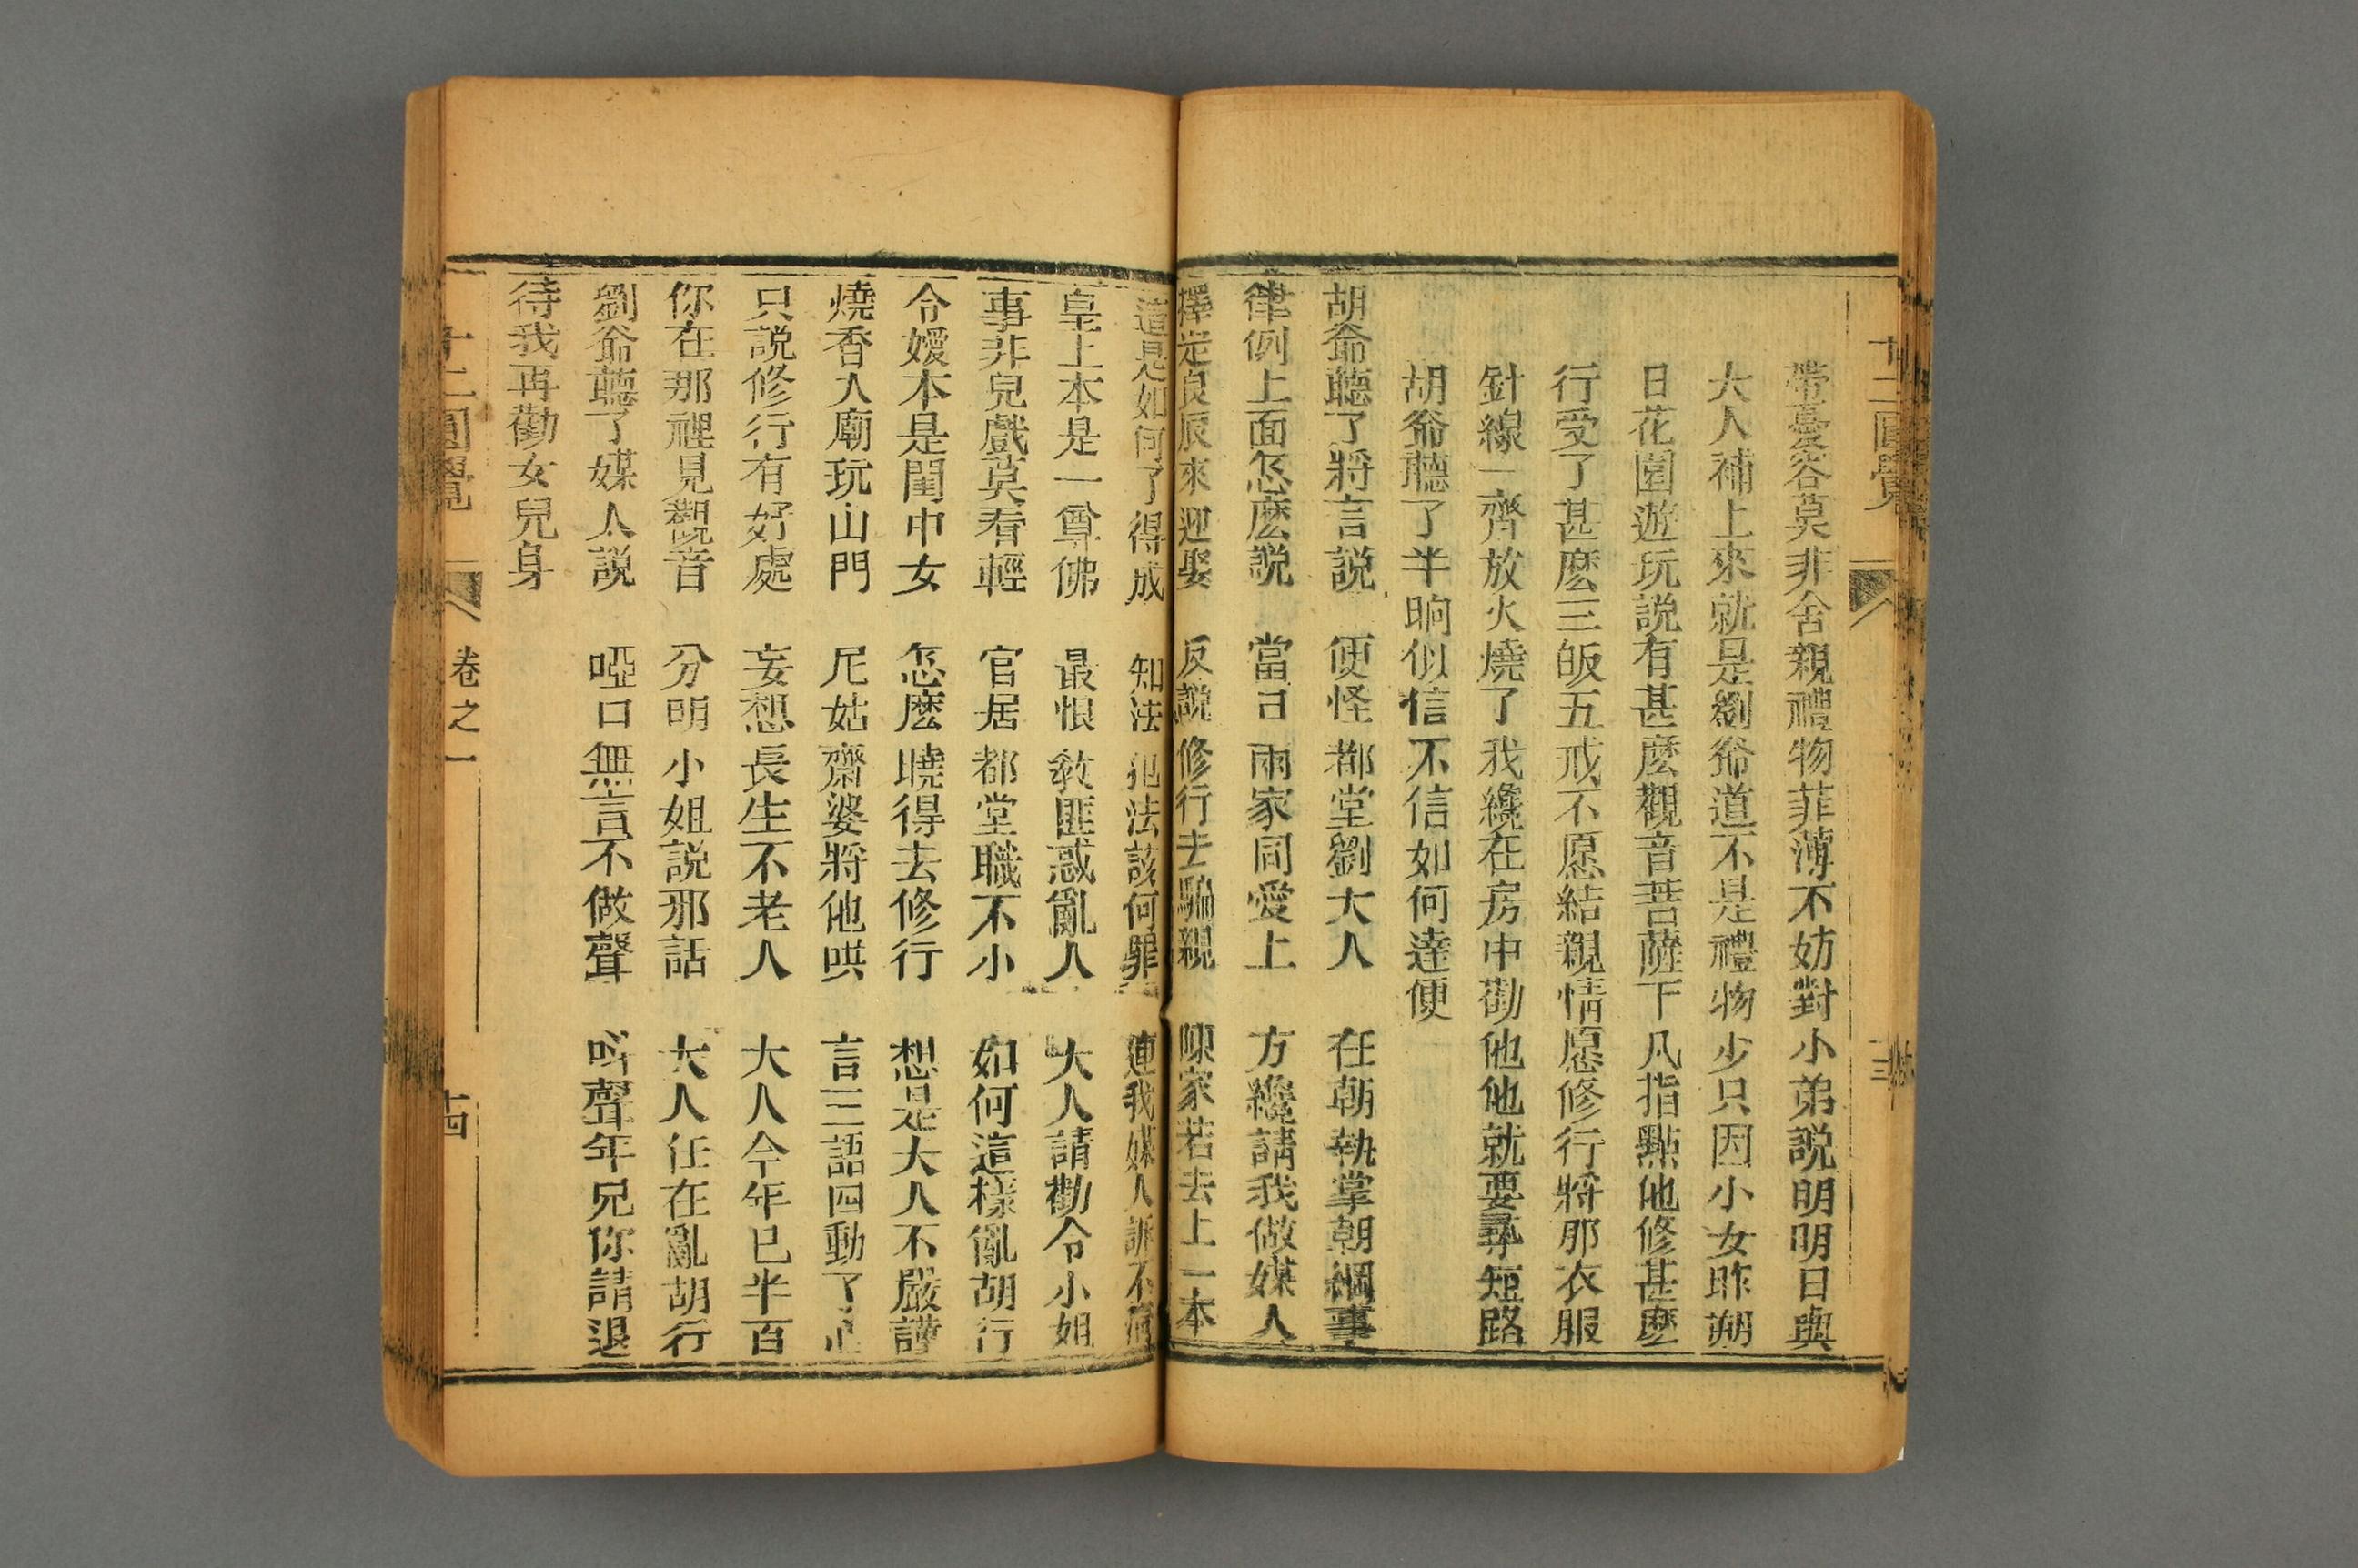 十二圓覺
帶憂容莫非舍親禮物菲薄不妨對小弟説明明日與
大人補上來就是劉爺道不是禮物少只因小女昨朔
日花園遊玩説有甚麽觀音菩薩下凡指點他修甚麽
行受了甚麽三皈五戒不愿結親情愿修行將那衣服
針線一齊放火燒了我纔在房中勸他他就要尋短路
胡爺聽了半晌似信不信如何達便
胡爺聽了將言説　便怪都堂劉大人　在朝執掌朝綱事
律例上面怎麽説　當日兩家同愛上　方纔請我做媒人
擇定良辰來迎娶　反説修行去騙親　陳家若去上一本
這是如何了得成　知法犯法該何罪　連我媒人訴不清
皇上本是一尊佛　最恨教匪惑亂人　大人請勸令小姐
事非兒戲莫看輕　官居都堂職不小　如何這樣亂胡行
令嬡本是閨中女　怎麽曉得去修行　想是大人不嚴謹
燒香入廟玩山門　尼姑齋婆將他哄　言三語四動了心
只説修行有好處　妄想長生不老人　大人今年已半百
你在那裡見觀音　分明小姐説邪話　大人任在亂胡行
劉爺聽了媒人説　啞口無言不做聲　呌聲年兄你請退
待我再勸女兒身
十二圓覺　卷之一　十四